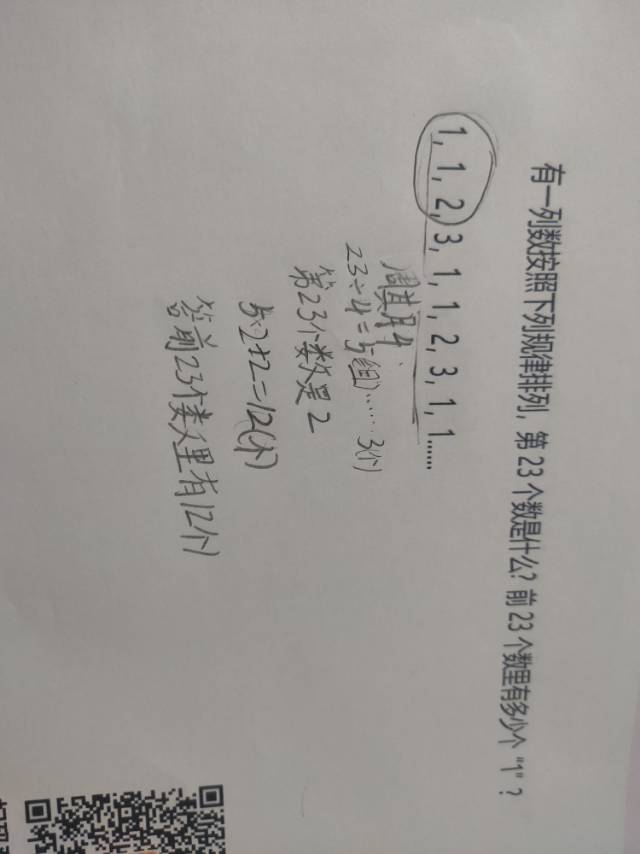 有一列数按照下列规律排列，第 23 个数是什么？前 23 个数里有多少个 "1"？
1, 1, 2, 3, 1, 1, 2, 3, 1, 1……
周其月4
23÷4=5(组)……3(个)
第23个数是2
5·2+2=12(个)
答前23个数里有12个1